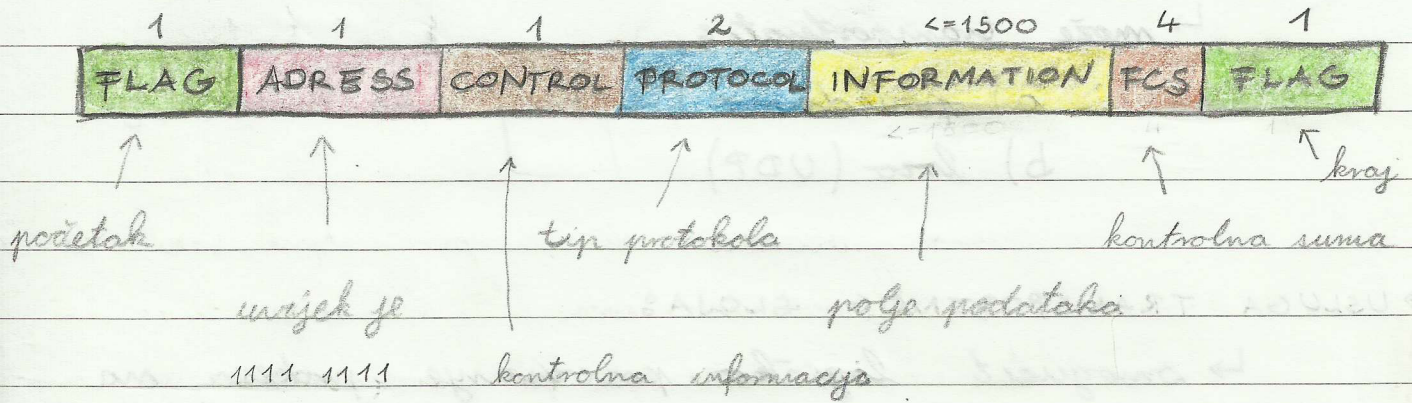 1 1 1 2 <=1500 4 1
FLAG ADRESS CONTROL PROTOCOL INFORMATION FCS FLAG
kraj
početak tip protokola kontrolna suma
uvijek je polje podataka
1111 1111 kontrolna informacija